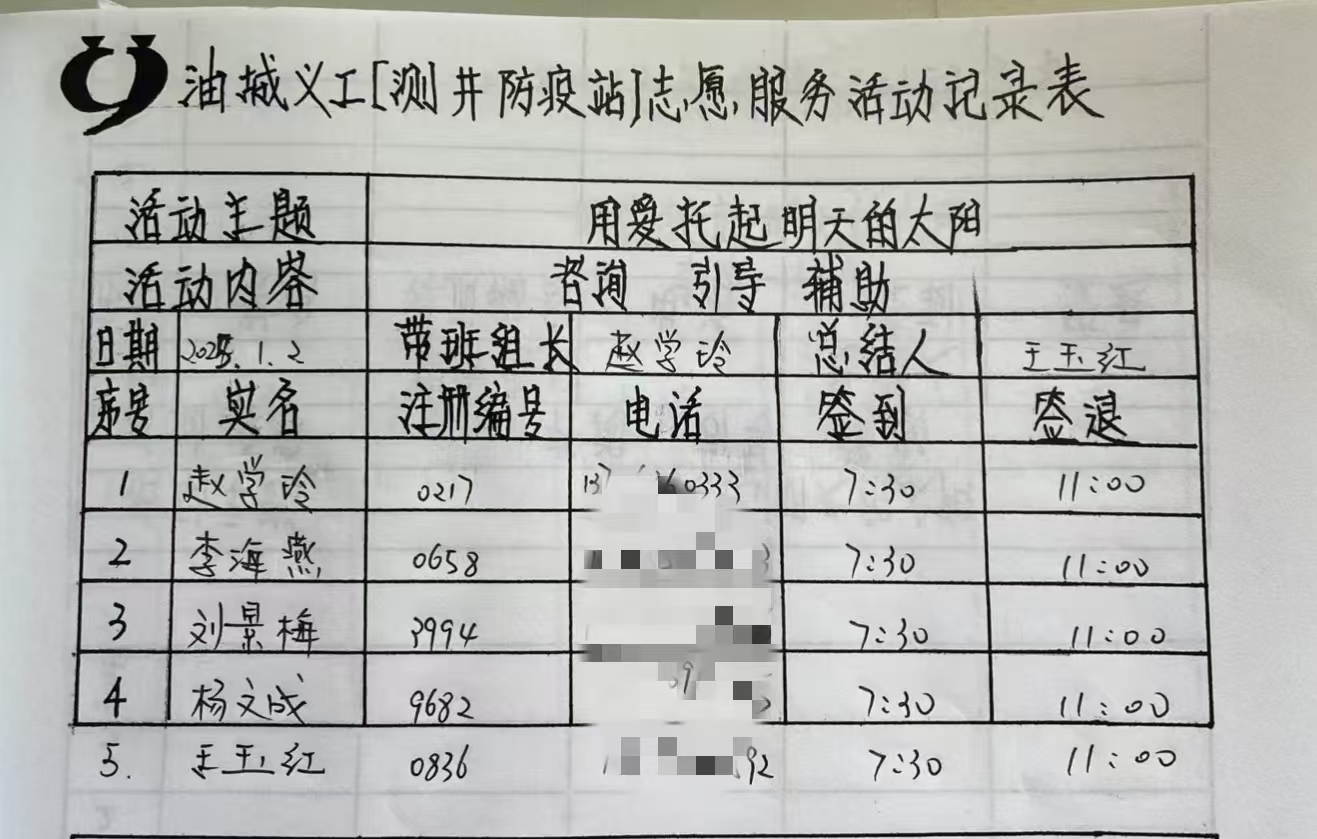 油城义工[测井防疫站]志愿服务活动记录表
活动主题 用爱托起明天的太阳
活动内容 咨询 引导 辅助
日期 2025.1.2 带班组长 赵学玲 总结人 王玉红
序号 实名 注册编号 电话 签到 签退
1 赵学玲 0217 7:30 11:00
2 李海燕 0658 7:30 11:00
3 刘景梅 3994 7:30 11:00
4 杨文成 9682 7:30 11:00
5. 王玉红 0836 7:30 11:00